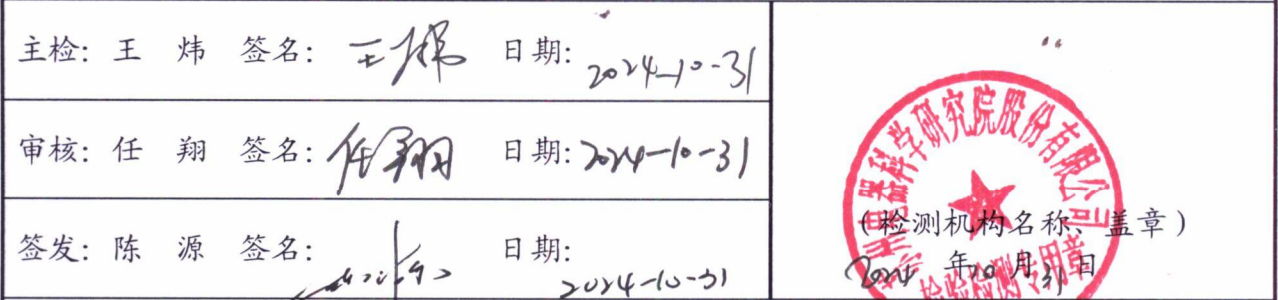 主检: 王 炜 签名: 王炜 日期: 2024-10-31
审核: 任 翔 签名: 任翔 日期: 2024-10-31
签发: 陈 源 签名: 日期: 2024-10-31
州电器科学研究院股份有限公司
(检测机构名称、盖章)
2024 年 10 月 31 日
检验检测专用章